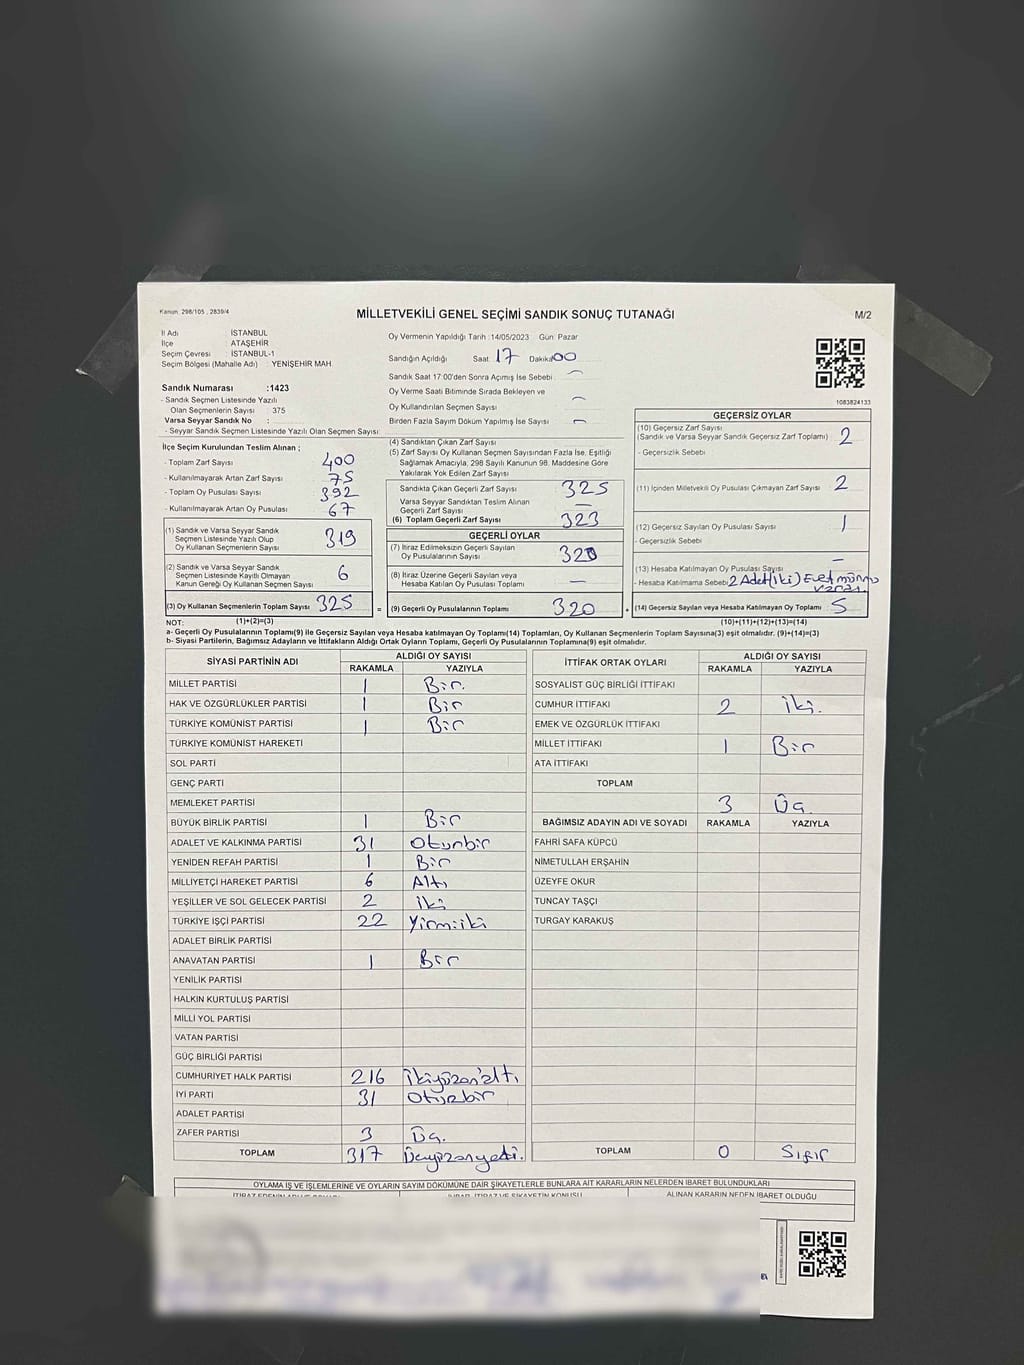 Kanun, 298/105 , 2839/4
MİLLETVEKİLİ GENEL SEÇİMİ SANDIK SONUÇ TUTANAĞI
M/2
İl Adı : İSTANBUL
İlçe : ATAŞEHİR
Seçim Çevresi : İSTANBUL-1
Seçim Bölgesi (Mahalle Adı) : YENİŞEHİR MAH.
Sandık Numarası :1423
- Sandık Seçmen Listesinde Yazılı
Olan Seçmenlerin Sayısı : 375
Varsa Seyyar Sandık No :
- Seyyar Sandık Seçmen Listesinde Yazılı Olan Seçmen Sayısı:
Oy Vermenin Yapıldığı Tarih :14/05/2023 Gün: Pazar
Sandığın Açıldığı Saat: 17 Dakika: 00
Sandık Saat 17:00'den Sonra Açımış İse Sebebi :
Oy Verme Saati Bitiminde Sırada Bekleyen ve
Oy Kullandırılan Seçmen Sayısı
Birden Fazla Sayım Döküm Yapılmış İse Sayısı :
1083824133
İlçe Seçim Kurulundan Teslim Alınan ;
- Toplam Zarf Sayısı 400
- Kullanılmayarak Artan Zarf Sayısı : 75
- Toplam Oy Pusulası Sayısı : 392
- Kullanılmayarak Artan Oy Pusulası : 67
(1) Sandık ve Varsa Seyyar Sandık
Seçmen Listesinde Yazılı Olup
Oy Kullanan Seçmenlerin Sayısı 319
(2) Sandık ve Varsa Seyyar Sandık
Seçmen Listesinde Kayıtlı Olmayan
Kanun Gereği Oy Kullanan Seçmen Sayısı 6
(3) Oy Kullanan Seçmenlerin Toplam Sayısı 325
(4) Sandıktan Çıkan Zarf Sayısı
(5) Zarf Sayısı Oy Kullanan Seçmen Sayısından Fazla İse, Eşitliği
Sağlamak Amacıyla, 298 Sayılı Kanunun 98. Maddesine Göre
Yakılarak Yok Edilen Zarf Sayısı
Sandıkta Çıkan Geçerli Zarf Sayısı 325
Varsa Seyyar Sandıktan Teslim Alınan
Geçerli Zarf Sayısı —
(6) Toplam Geçerli Zarf Sayısı 323
GEÇERLİ OYLAR
(7) İtiraz Edilmeksizin Geçerli Sayılan
Oy Pusulalarının Sayısı 320
(8) İtiraz Üzerine Geçerli Sayılan veya
Hesaba Katılan Oy Pusulası Toplamı —
= (9) Geçerli Oy Pusulalarının Toplamı 320
GEÇERSİZ OYLAR
(10) Geçersiz Zarf Sayısı
(Sandık ve Varsa Seyyar Sandık Geçersiz Zarf Toplamı) 2
- Geçersizlik Sebebi :
(11) İçinden Milletvekili Oy Pusulası Çıkmayan Zarf Sayısı 2
(12) Geçersiz Sayılan Oy Pusulası Sayısı 1
- Geçersizlik Sebebi :
(13) Hesaba Katılmayan Oy Pusulası Sayısı —
- Hesaba Katılmama Sebebi: 2 Adet (iki) Evet
(14) Geçersiz Sayılan veya Hesaba Katılmayan Oy Toplamı 5
NOT: (1)+(2)=(3) (10)+(11)+(12)+(13)=(14)
a- Geçerli Oy Pusulalarının Toplamı(9) ile Geçersiz Sayılan veya Hesaba katılmayan Oy Toplamı(14) Toplamları, Oy Kullanan Seçmenlerin Toplam Sayısına(3) eşit olmalıdır. (9)+(14)=(3)
b- Siyasi Partilerin, Bağımsız Adayların ve İttifakların Aldığı Oy Ortak Oyların Toplamı, Geçerli Oy Pusulalarının Toplamına(9) eşit olmalıdır.
SİYASİ PARTİNİN ADI ALDIĞI OY SAYISI
RAKAMLA YAZIYLA
MİLLET PARTİSİ 1 Bir.
HAK VE ÖZGÜRLÜKLER PARTİSİ 1 Bir
TÜRKİYE KOMÜNİST PARTİSİ 1 Bir
TÜRKİYE KOMÜNİST HAREKETİ
SOL PARTİ
GENÇ PARTİ
MEMLEKET PARTİSİ
BÜYÜK BİRLİK PARTİSİ 1 Bir
ADALET VE KALKINMA PARTİSİ 31 Otuzbir
YENİDEN REFAH PARTİSİ 1 Bir
MİLLİYETÇİ HAREKET PARTİSİ 6 Altı
YEŞİLLER VE SOL GELECEK PARTİSİ 2 iki
TÜRKİYE İŞÇİ PARTİSİ 22 Yirmiiki
ADALET BİRLİK PARTİSİ
ANAVATAN PARTİSİ 1 Bir
YENİLİK PARTİSİ
HALKIN KURTULUŞ PARTİSİ
MİLLİ YOL PARTİSİ
VATAN PARTİSİ
GÜÇ BİRLİĞİ PARTİSİ
CUMHURİYET HALK PARTİSİ 216 ikiyüzon'altı
İYİ PARTİ 31 Otuzbir
ADALET PARTİSİ
ZAFER PARTİSİ 3 Üç.
TOPLAM 317 Üçyüzonyedi.
İTTİFAK ORTAK OYLARI ALDIĞI OY SAYISI
RAKAMLA YAZIYLA
SOSYALİST GÜÇ BİRLİĞİ İTTİFAKI
CUMHUR İTTİFAKI 2 iki.
EMEK VE ÖZGÜRLÜK İTTİFAKI
MİLLET İTTİFAKI 1 Bir
ATA İTTİFAKI
TOPLAM
3 Üç.
BAĞIMSIZ ADAYIN ADI VE SOYADI RAKAMLA YAZIYLA
FAHRİ SAFA KÜPCÜ
NİMETULLAH ERŞAHİN
ÜZEYFE OKUR
TUNCAY TAŞÇI
TURGAY KARAKUŞ
TOPLAM 0 Sıfır
OYLAMA İŞ VE İŞLEMLERİNE VE OYLARIN SAYIM DÖKÜMÜNE DAİR ŞİKAYETLERLE BUNLARA AİT KARARLARIN NELERDEN İBARET BULUNDUKLARI
ALINAN KARARIN NEDEN İBARET OLDUĞU